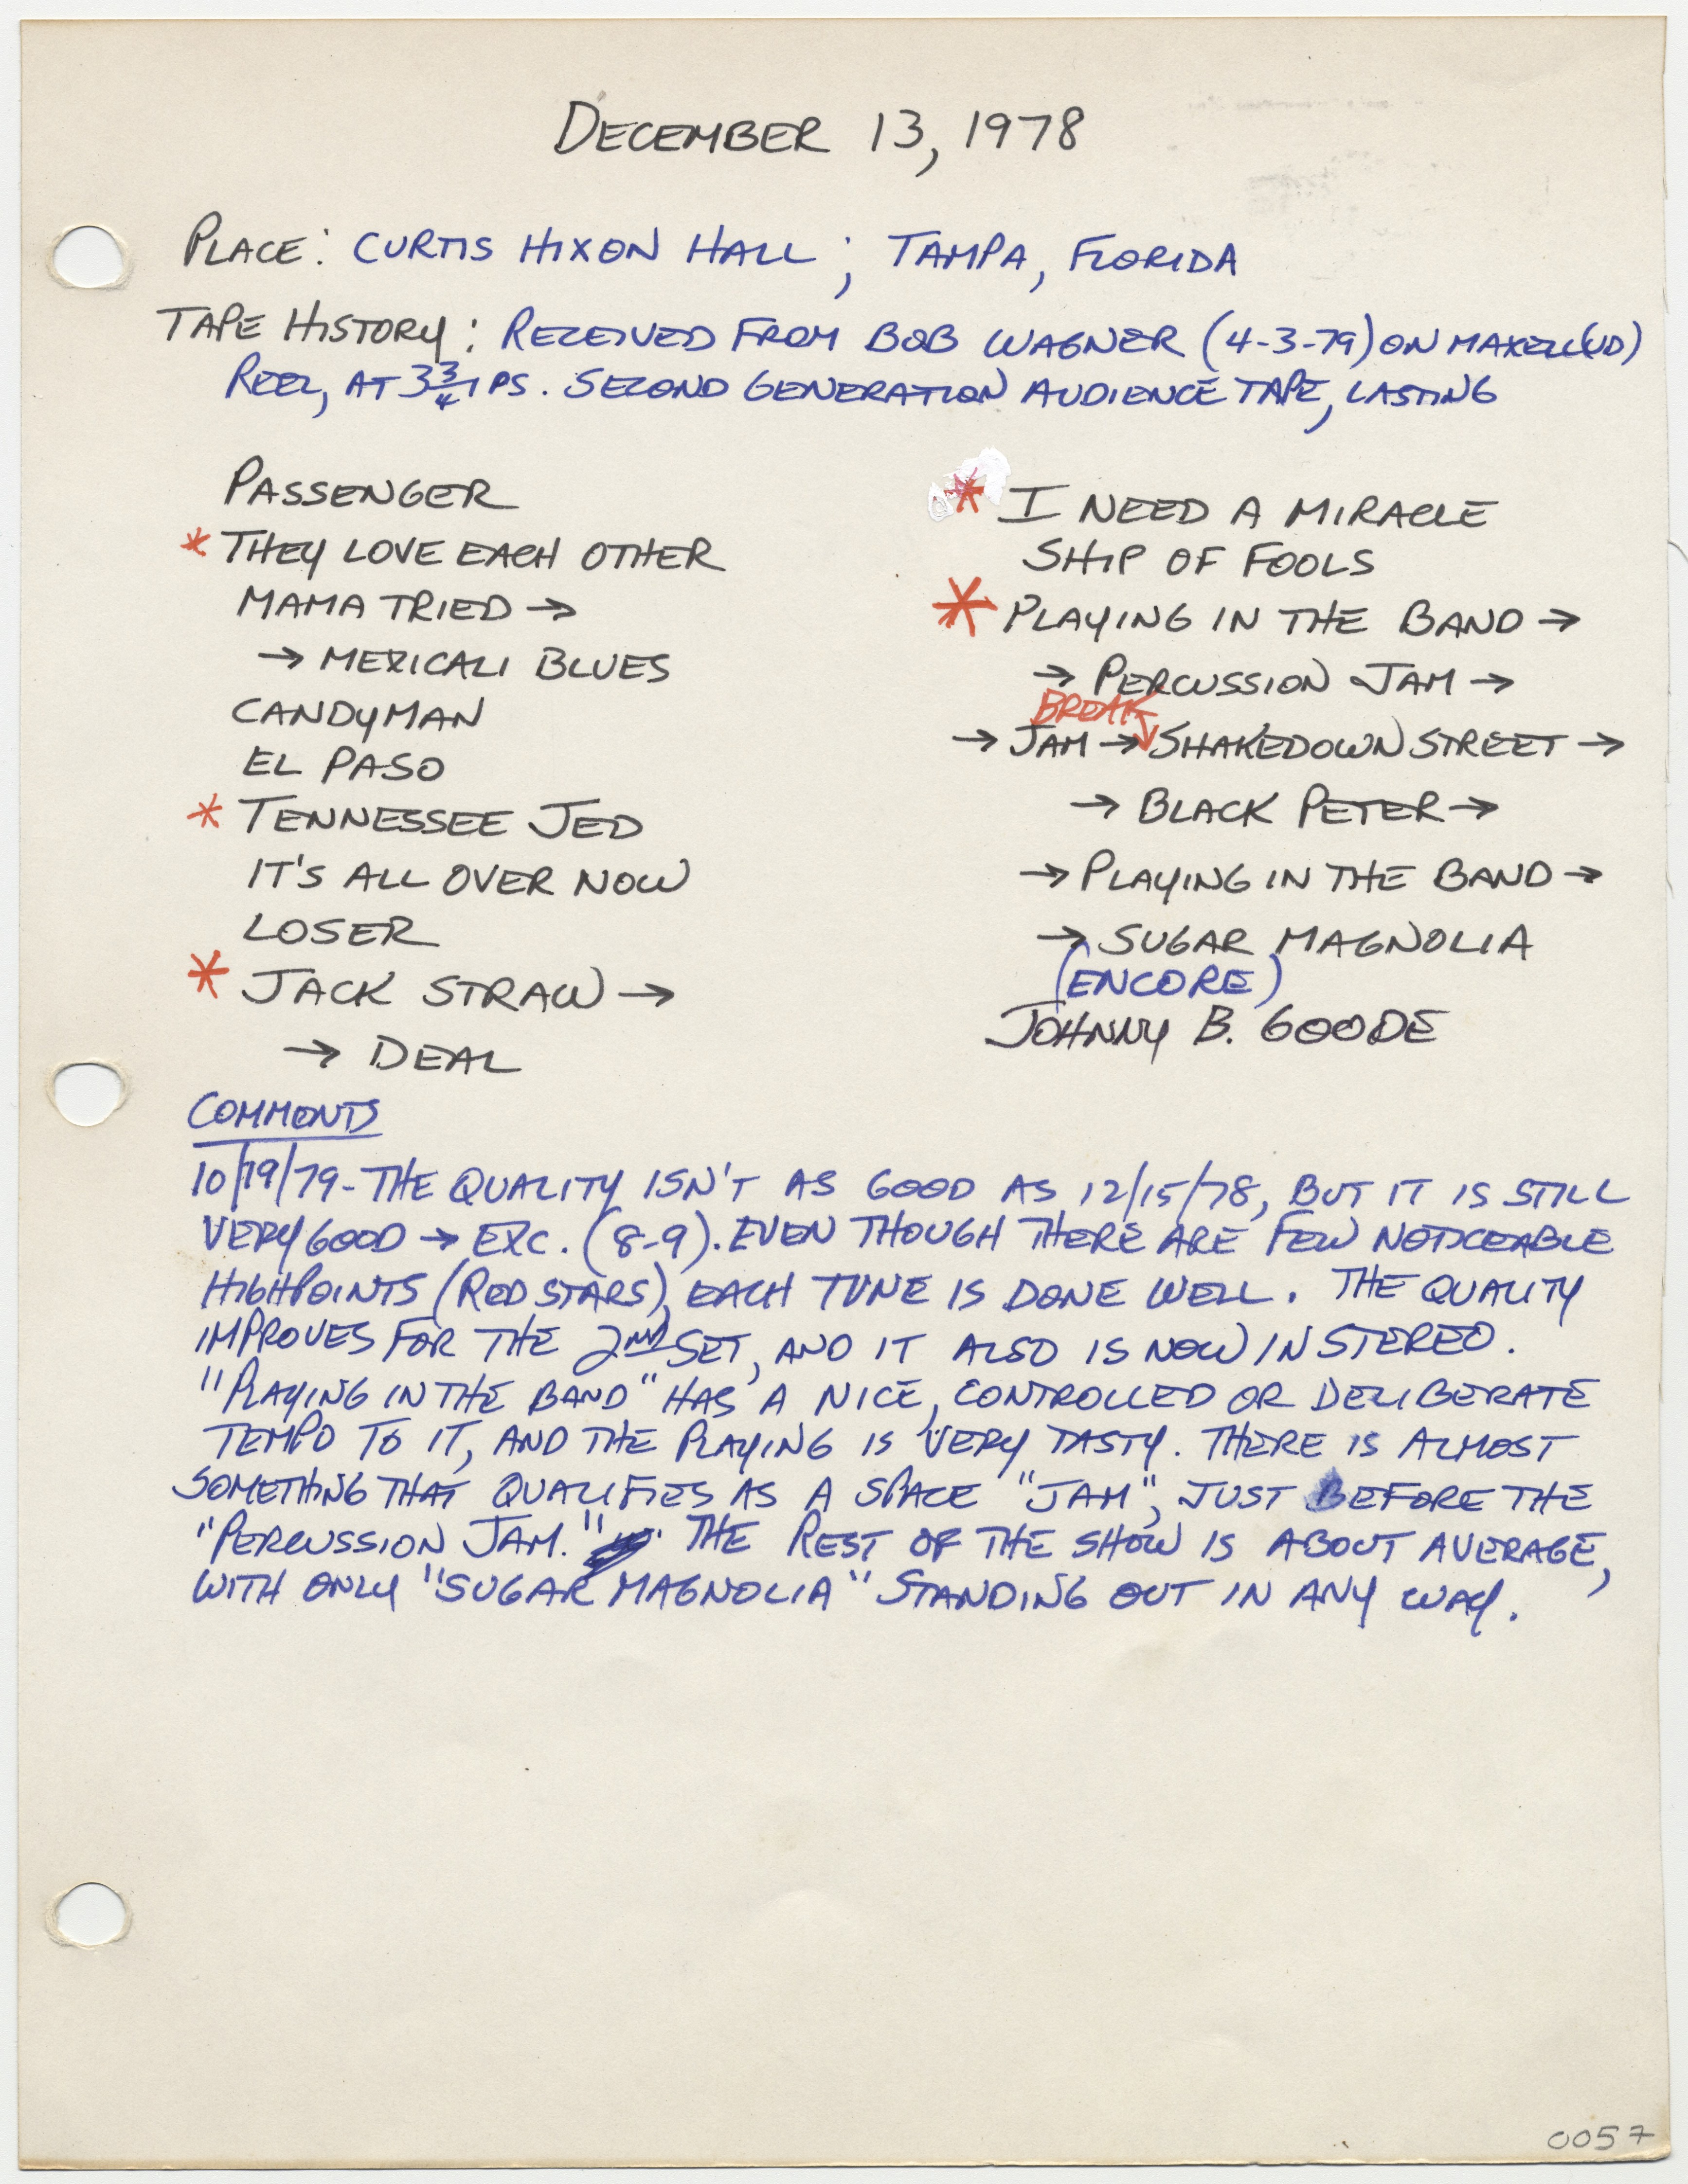 DECEMBER 13, 1978
PLACE: CURTIS HIXON HALL; TAMPA, FLORIDA
TAPE HISTORY: RECEIVED FROM BOB WAGNER (4-3-79) ON MAXELL (UD)
REEL, AT 3 3/4 IPS. SECOND GENERATION AUDIENCE TAPE, LASTING
PASSENGER
* THEY LOVE EACH OTHER
MAMA TRIED →
→ MEXICALI BLUES
CANDYMAN
EL PASO
* TENNESSEE JED
IT'S ALL OVER NOW
LOSER
* JACK STRAW →
→ DEAL
* I NEED A MIRACLE
SHIP OF FOOLS
* PLAYING IN THE BAND →
→ PERCUSSION JAM →
BREAK
→ JAM → SHAKEDOWN STREET →
→ BLACK PETER →
→ PLAYING IN THE BAND →
→ SUGAR MAGNOLIA
(ENCORE)
JOHNNY B. GOODE
COMMENTS
10/19/79 - THE QUALITY ISN'T AS GOOD AS 12/15/78, BUT IT IS STILL
VERY GOOD → EXC. (8-9). EVEN THOUGH THERE ARE FEW NOTICEABLE
HIGHPOINTS (RED STARS), EACH TUNE IS DONE WELL. THE QUALITY
IMPROVES FOR THE 2ND SET, AND IT ALSO IS NOW IN STEREO.
"PLAYING IN THE BAND" HAS A NICE, CONTROLLED OR DELIBERATE
TEMPO TO IT, AND THE PLAYING IS VERY TASTY. THERE IS ALMOST
SOMETHING THAT QUALIFIES AS A SPACE "JAM", JUST BEFORE THE
"PERCUSSION JAM." THE REST OF THE SHOW IS ABOUT AVERAGE,
WITH ONLY "SUGAR MAGNOLIA" STANDING OUT IN ANY WAY.
0057